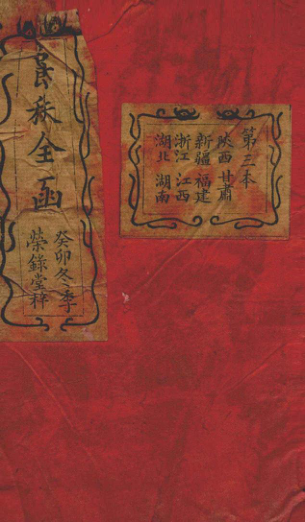 第三本
陝西 甘肅
新疆 福建
浙江 江西
湖北 湖南
爵秩全函
癸卯冬季
榮錄堂梓